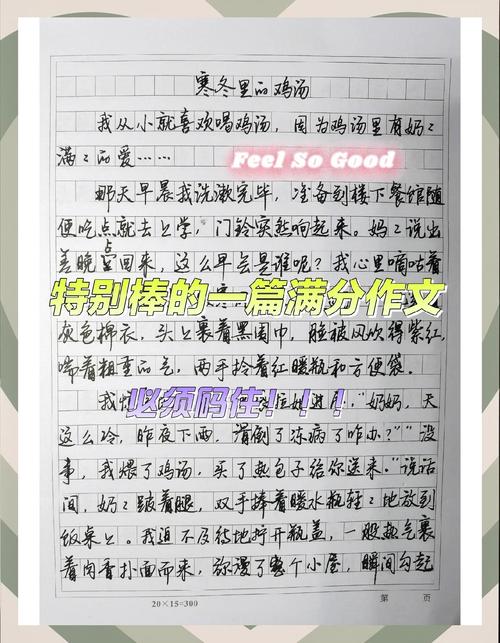 寒冬里的鸡汤
我从小就喜欢喝鸡汤，因为鸡汤里有妈々
满々的爱……
Feel So Good
那天早晨我洗漱完毕，准备到楼下餐馆随
便吃点就去上学，门铃突然响起来。妈々说出
差晚点回来，这么早会是谁呢？我心里嘀咕着
特别棒的一篇满分作文
灰色棉衣，头上裹着黑围巾，脸被风吹得紫红，
喘着粗重的气，两手拎着红暖瓶和方便袋。
必须码住！！！
"奶奶，天
这么冷，昨夜下雨，滑倒了冻病了咋办？""没
事，我煨了鸡汤，买了热包子给你送来。"说话
间，奶々跛着腿，双手捧着暖水瓶轻々地放到
饭桌上。我迫不及待地拧开瓶盖，一股热气裹
着肉香扑面而来，弥漫了整个小屋，瞬间勾起
20×15=300
第 页